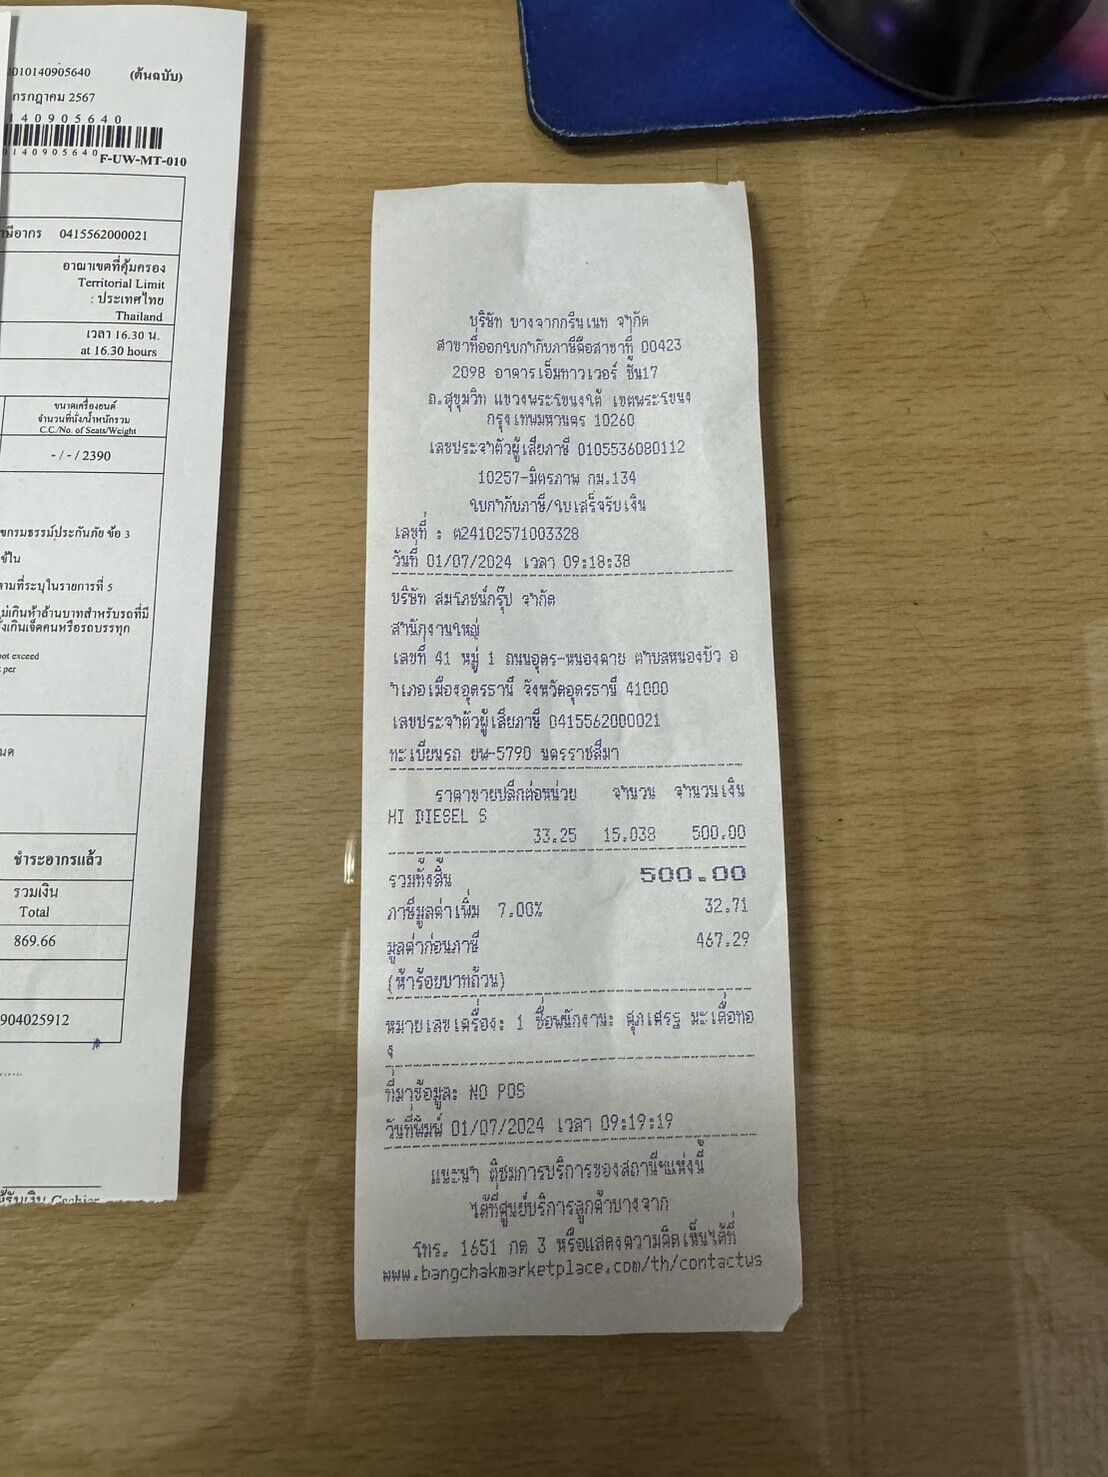 2010140905640 (ต้นฉบับ)
กรกฎาคม 2567
140905640
0140905640
F-UW-MT-010
ษีอากร 0415562000021
อาณาเขตที่คุ้มครอง
Territorial Limit
: ประเทศไทย
Thailand
เวลา 16.30 น.
at 16.30 hours
ขนาดเครื่องยนต์
จำนวนที่นั่ง/น้ำหนักรวม
C.C./No. of Seats/Weight
- / - / 2390
กรมธรรม์ประกันภัย ข้อ 3
ตามที่ระบุในรายการที่ 5
ไม่เกินห้าล้านบาทสำหรับรถที่มี
นั่งเกินเจ็ดคนหรือรถบรรทุก
not exceed
per
ชำระอากรแล้ว
รวมเงิน
Total
869.66
904025912
ผู้รับเงิน Cashier
บริษัท บางจากกรีนเนท จำกัด
สาขาที่ออกใบกำกับภาษีคือสาขาที่ 00423
2098 อาคารเอ็มทาวเวอร์ ชั้น17
ถ.สุขุมวิท แขวงพระโขนงใต้ เขตพระโขนง
กรุงเทพมหานคร 10260
เลขประจำตัวผู้เสียภาษี 0105536080112
10257-มิตรภาพ กม.134
ใบกำกับภาษี/ใบเสร็จรับเงิน
เลขที่ : ต24102571003328
วันที่ 01/07/2024 เวลา 09:18:38
บริษัท สมโภชน์กรุ๊ป จำกัด
สำนักงานใหญ่
เลขที่ 41 หมู่ 1 ถนนอุดร-หนองคาย ตำบลหนองบัว อ
ำเภอเมืองอุดรธานี จังหวัดอุดรธานี 41000
เลขประจำตัวผู้เสียภาษี 0415562000021
ทะเบียนรถ ยพ-5790 นครราชสีมา
ราคาขายปลีกต่อหน่วย จำนวน จำนวนเงิน
HI DIESEL S
33.25 15.038 500.00
รวมทั้งสิ้น 500.00
ภาษีมูลค่าเพิ่ม 7.00% 32.71
มูลค่าก่อนภาษี 467.29
(ห้าร้อยบาทถ้วน)
หมายเลขเครื่อง: 1 ชื่อพนักงาน: ศุภเศรฐ มะเดื่อทอ
ง
ที่มาข้อมูล: NO POS
วันที่พิมพ์ 01/07/2024 เวลา 09:19:19
แนะนำ ติชมการบริการของสถานีฯแห่งนี้
ได้ที่ศูนย์บริการลูกค้าบางจาก
โทร. 1651 กด 3 หรือแสดงความคิดเห็นได้ที่
www.bangchakmarketplace.com/th/contactus